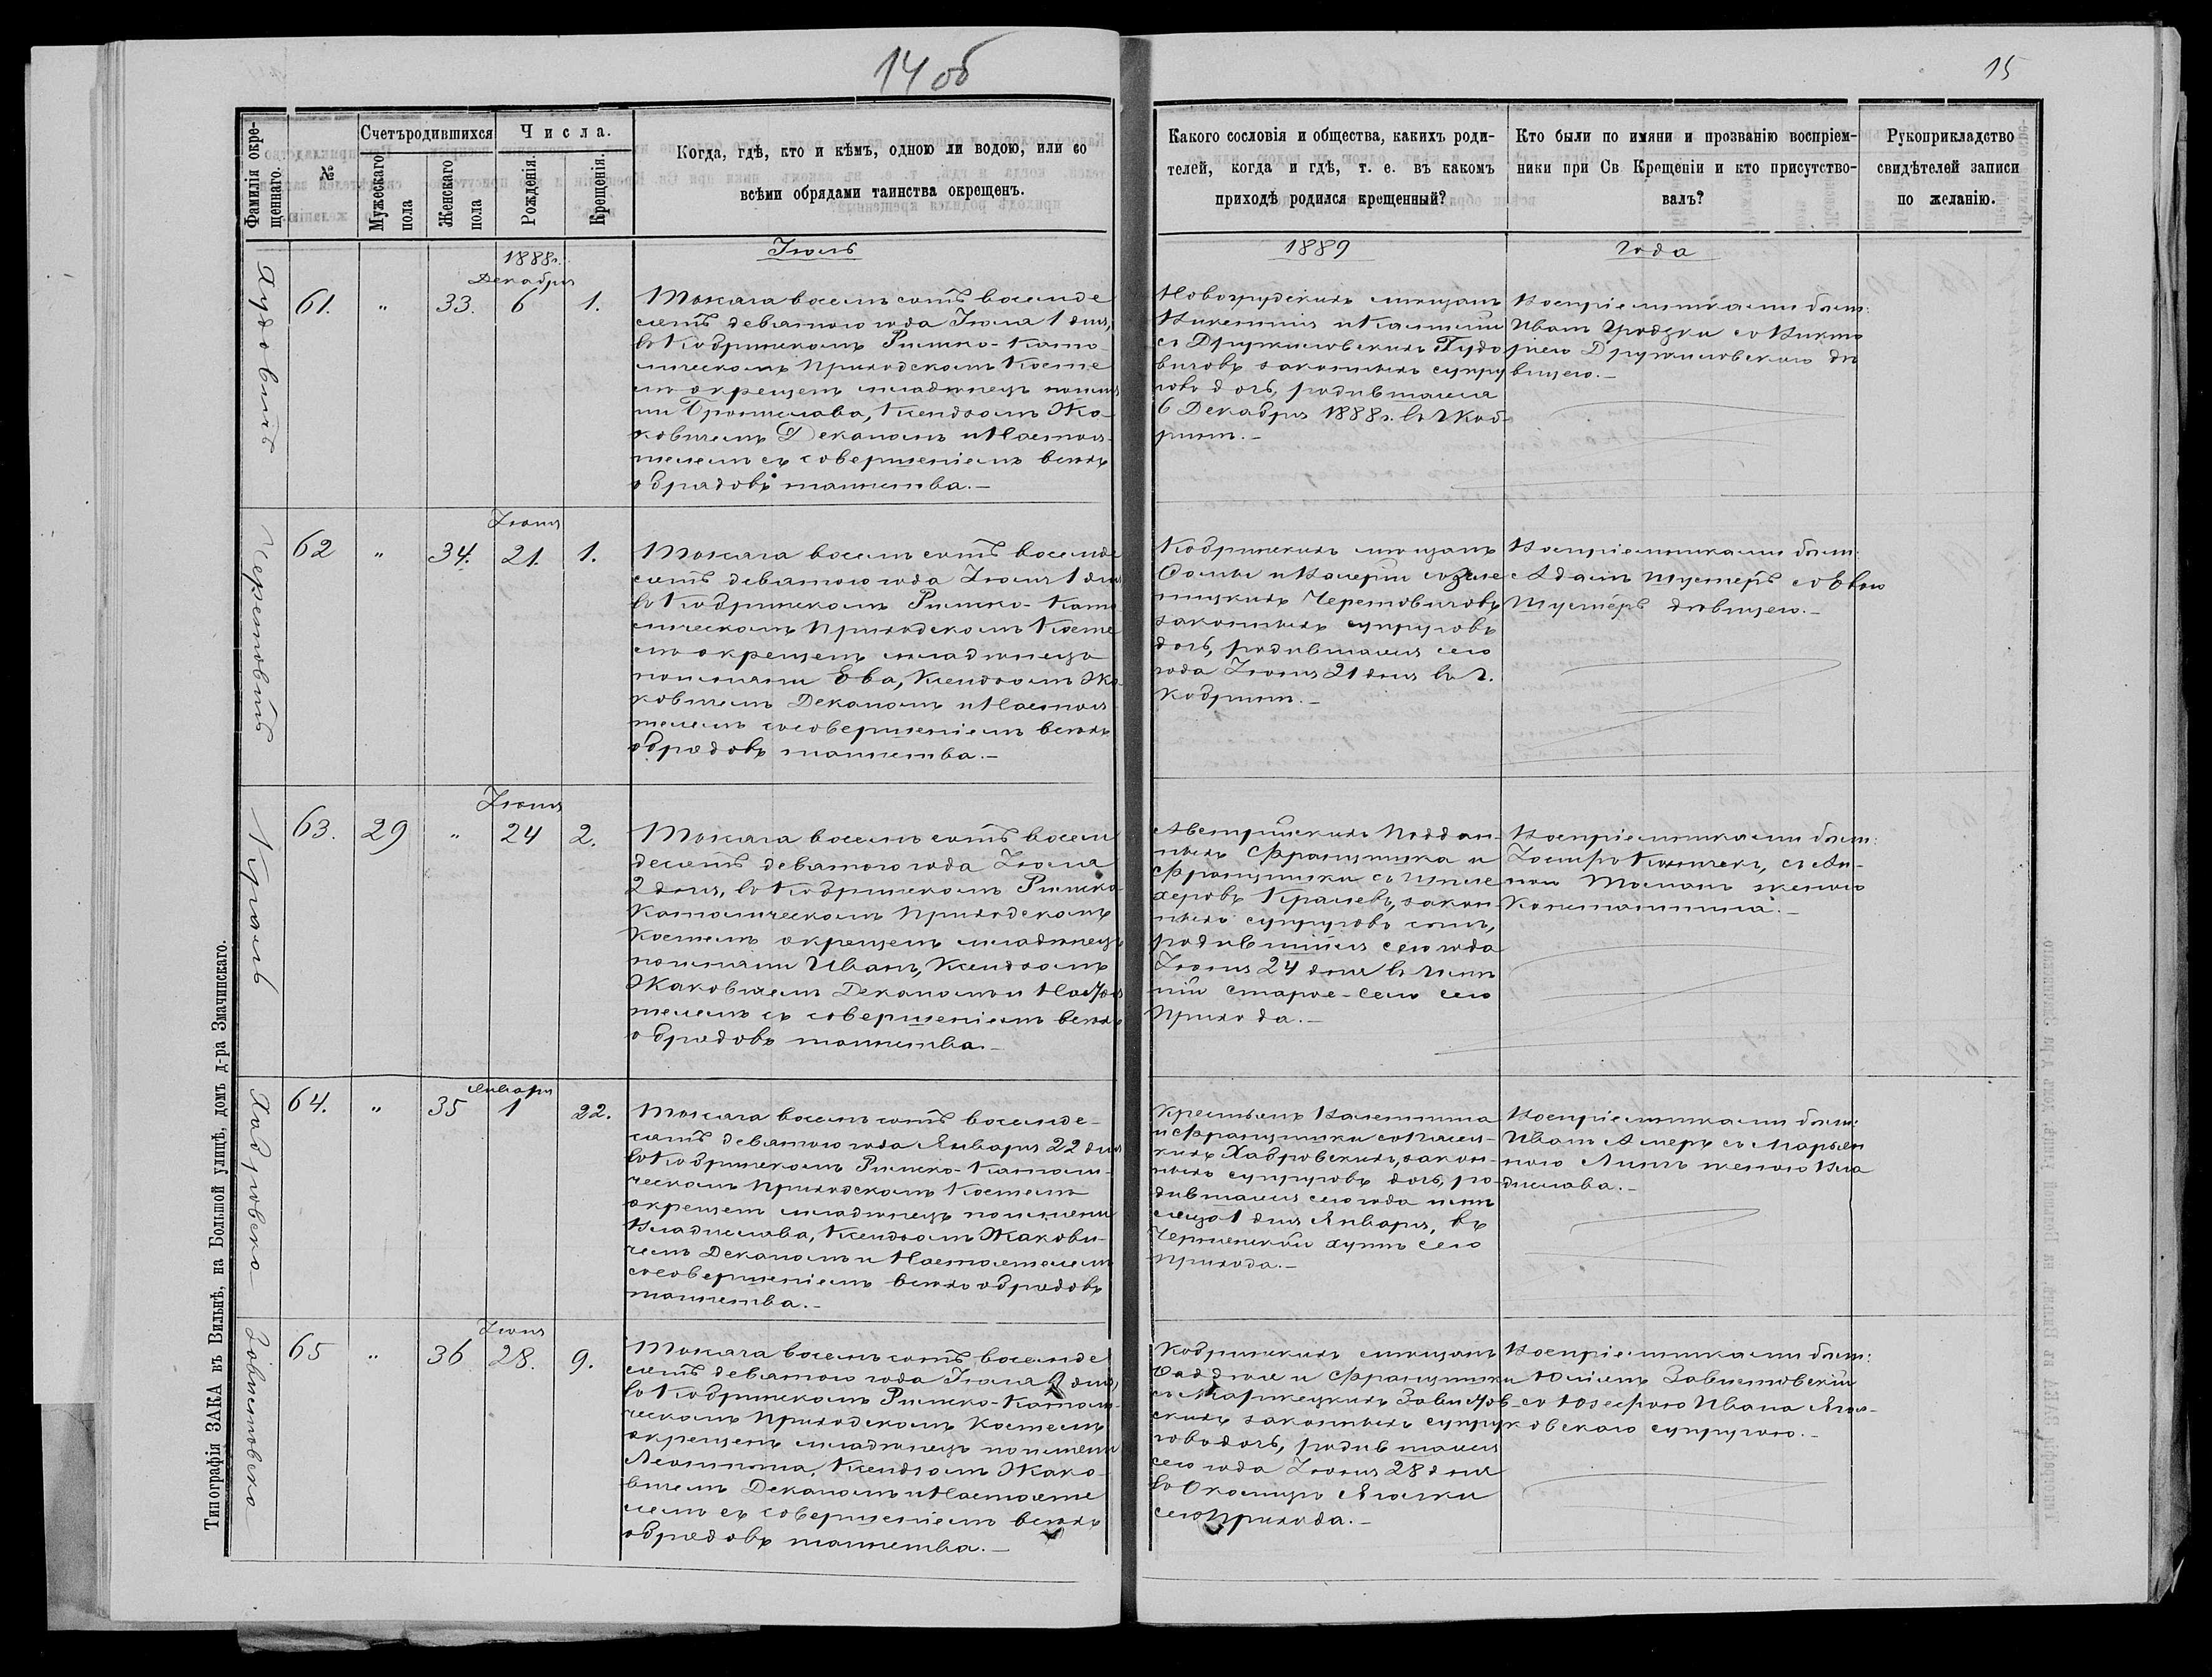 14 об
15
Фамилія окре-
щеннаго.
№
Счетъ родившихся
Мужескаго
пола
Женскаго
пола
Числа.
Рожденія.
Крещенія.
Когда, гдѣ, кто и кѣмъ, одною ли водою, или со
всѣми обрядами таинства окрещенъ.
Какого сословія и общества, какихъ роди-
телей, когда и гдѣ, т. е. въ какомъ
приходѣ родился крещенный?
Кто были по имяни и прозванію воспріем-
ники при Св Крещеніи и кто присутство-
валъ?
Рукоприкладство
свидѣтелей записи
по желанію.
Іюль
1889
года
1888г.
Декабря
61.
"
33.
6
1.
Тысяча восемь сотъ восемьде
сятъ девятого года Іюля 1 дня,
въ Кобринскомъ Римско-Като
лическомъ Приходскомъ Косте
лѣ окрещенъ младенецъ
Бронислава, Ксендзомъ Жа-
ковичемъ Деканомъ и Настоя
телемъ съ совершеніемъ всѣхъ
обрядовъ таинства.-
мѣщанъ
законныхъ супру
говъ дочь, родившаяся
6 Декабря 1888г. въ г Коб-
ринѣ.-
Воспріемниками были:
Иванъ
Дружиловского дѣ
вицею.-
Черетовичъ
Іюня
62
"
34.
21.
1.
Тысяча восемь сотъ восемьде
сятъ девятого года Іюля 1 дня
въ Кобринскомъ Римско-Като
лическомъ Приходскомъ Косте
лѣ окрещенъ младенецъ
по имяни Ева, Ксендзомъ Жа
ковичемъ Деканомъ и Настоя
телемъ со совершеніемъ всѣхъ
обрядовъ таинства.-
Кобринскихъ мѣщанъ
Фомы и Валеріи
Черетовичовъ
законныхъ супруговъ
дочь, родившаяся сего
года Іюня 21 дня въ г.
Кобринѣ.-
Воспріемниками были:
Адамъ Шустеръ со Евою
Шустеръ дѣвицею.-
Кроль
Іюня
63.
29
"
24
2.
Тысяча восемь сотъ восемь
десятъ девятого года Іюля
2 дня, въ Кобринскомъ Римско
Католическомъ Приходскомъ
Костелѣ окрещенъ младенецъ
по имяни Иванъ, Ксендзомъ
Жаковичемъ Деканомъ и Настоя
телемъ съ совершеніемъ всѣхъ
обрядовъ таинства.-
Австрійскихъ Поддан-
ныхъ Францишка и
Францишки съ
закон
ныхъ супруговъ сынъ,
родившійся сего года
Іюня 24 дня въ имѣ
ніи Старое-село сего
Прихода.-
Воспріемниками были:
съ Ан-
ною женою
Константина.-
Хабровска
Января
64.
"
35
1
22.
Тысяча восемь сотъ восемьде-
сятъ девятого года Января 22 дня
въ Кобринскомъ Римско-Католи-
ческомъ Приходскомъ Костелѣ
окрещенъ младенецъ по имени
Владислава, Ксендзомъ Жакови-
чемъ Деканомъ и Настоятелемъ
со совершеніемъ всѣхъ обрядовъ
таинства.-
Крестьянъ Валентина
и Францишки
Хабровскихъ, закон-
ныхъ супруговъ дочь, ро-
дившаяся сего года
1 дня Января, въ
сего
прихода.-
Воспріемниками были:
Иванъ съ Марьян
ною женою Вла
дислава.-
Завистовска
Іюня
65
"
36
28.
9.
Тысяча восемь сотъ восемьде
сятъ девятого года Іюля 9 дня,
въ Кобринскомъ Римско-Католи-
ческомъ Приходскомъ Костелѣ
окрещенъ младенецъ по имени
Леонтина, Ксендзомъ Жако-
вичемъ Деканомъ и Настояте
лемъ съ совершеніемъ всѣхъ
обрядовъ таинства.-
Кобринскихъ мѣщанъ
Фаддѣя и Францишки
Завистов-
скихъ законныхъ супру
говъ дочь, родившаяся
сего года Іюня 28 дня
въ Околицѣ
сего Прихода.-
Воспріемниками были:
Юліанъ Завистовскій
со Юзефою Ивана
супругою.-
Типографія ЗАКА въ Вильнѣ, на Большой улицѣ, домъ д-ра Змачинскаго.